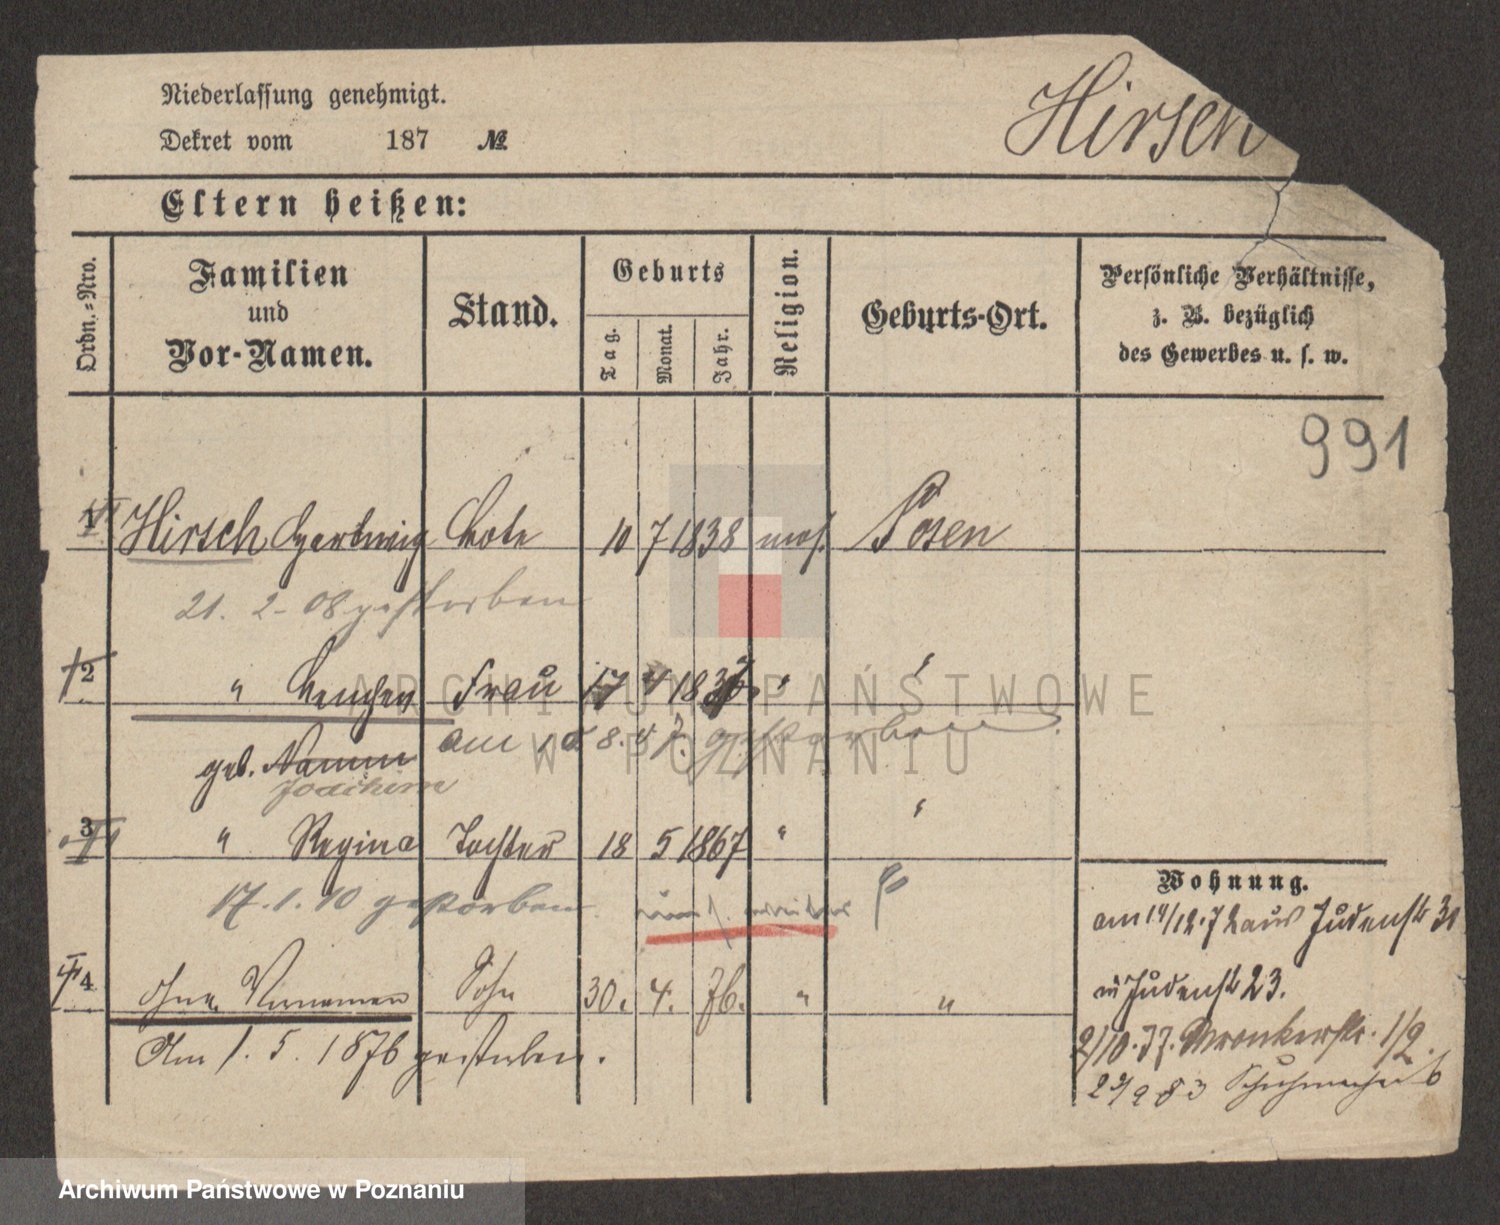 Niederlassung genehmigt.
Hirsch
Dekret vom 187 №
Eltern heißen:
Ordn.-Nro.
Familien und Vor-Namen.
Stand.
Geburts
Tag.
Monat.
Jahr.
Religion.
Geburts-Ort.
Persönliche Verhältnisse, z. B. bezüglich des Gewerbes u. s. w.
991
1 Hirsch Hartwig Bote 10 7 1838 mos. Posen
21. 2 - 08 gestorben
2 " Lenchen Frau 17 4 18 " "
am 8. gestorben
geb.
Joachim
3 " Regina Tochter 18 5 1867 " "
Wohnung.
17. 1. 10 gestorben
am 14/12.72 aus Judenstr 31
4 ohne Vornamen Sohn 30. 4. 76. " "
n Judenstr 23.
Am 1. 5. 1876 gestorben.
2/10. 77. Wronkerstr. 1/2.
29/9 83 Schuhmacherstr 6
ARCHIWUM PAŃSTWOWE
W POZNANIU
Archiwum Państwowe w Poznaniu